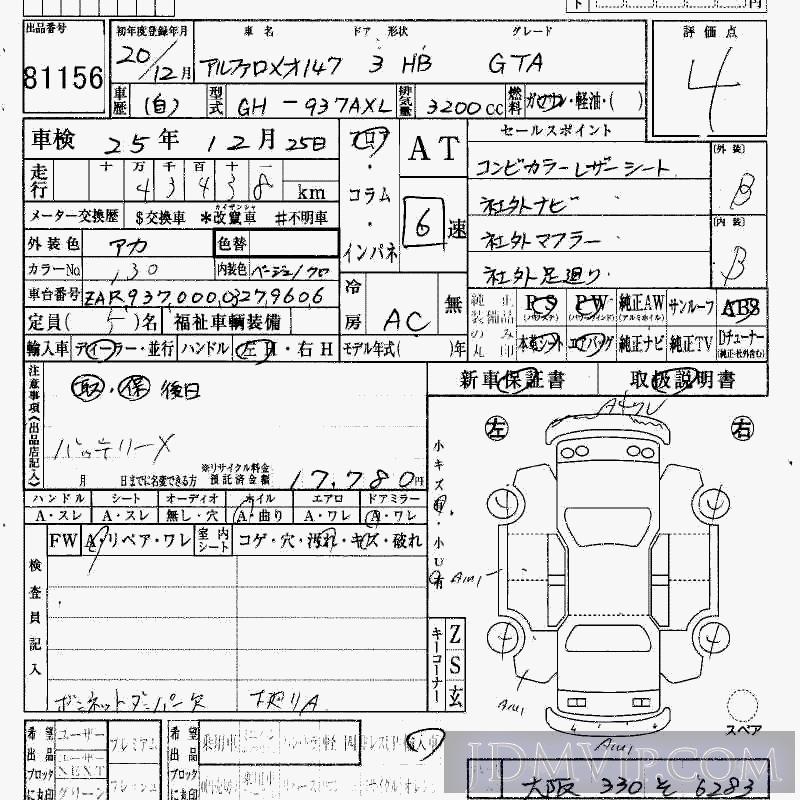 出品番号
81156
初年度登録年月
20/12月
車名
ドア 形状
グレード
アルファロメオ147 3 HB GTA
評価点
4
車歴 (自) 型式 GH-937AXL 排気量 3200cc 燃料 ガソリン・軽油・( )
車検 25年 12月 25日
走行
十 万 千 百 十 一
4 3 4 3 8 km
メーター交換歴 $交換車 *改竄車 #不明車
外装色 アカ 色替
カラーNo. 130 内装色 ベージュ/クロ
車台番号 ZAR937,000,08279606
定員( 5 )名 福祉車輌装備
輸入車 ディーラー・並行 ハンドル 左H・右H モデル年式( )年
回・コラム・インパネ
AT
6速
冷房 AC 無
セールスポイント
コンビカラーレザーシート
社外ナビ
社外マフラー
社外足廻り
[外装]
B
[内装]
B
純正装備品のみ丸印
PS (パワステ) PW (パワーウィンド) 純正AW (アルミホイル) サンルーフ ABS
本革シート エアバッグ 純正ナビ 純正TV Dチューナー (純正・社外含む)
新車保証書 取扱説明書
注意事項(出品店記入)
取・保 後日
バッテリーX
月 日までに名変できる方 ※リサイクル料金預託済金額 17,780円
ハンドル シート オーディオ ホイル エアロ ドアミラー
A・スレ A・スレ 無し・穴 A・曲り A・ワレ A・ワレ
FW A・リペア・ワレ 室内シート コゲ・穴・汚れ・キズ・破れ
検査員記入
ボンネットダンパー欠 下廻りA
小キズ・小凹有
左 右
AM1
AM1
AM1
キーコーナー Z S 玄
スペア
希望出品ブロックに丸印
ユーザー プレミアム
ユーザーNEXT
グリーン
希望出品ブロックに丸印
輸入車
大阪 330 そ 6283
JDMVIP.COM